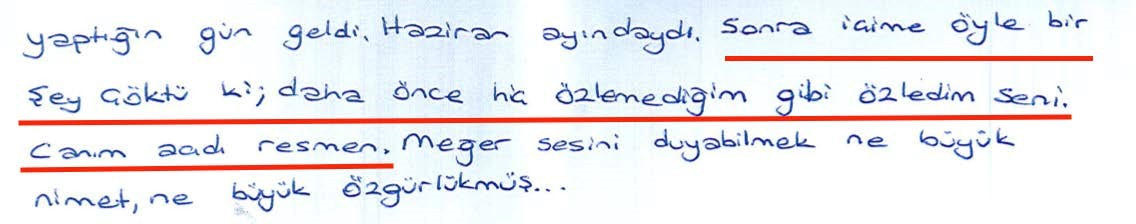 yaptığın gün geldi. Haziran ayındaydı. Sonra içime öyle bir
şey çöktü ki; daha önce hiç özlemediğim gibi özledim seni.
Canım acıdı resmen. Meğer sesini duyabilmek ne büyük
nimet, ne büyük özgürlükmüş...